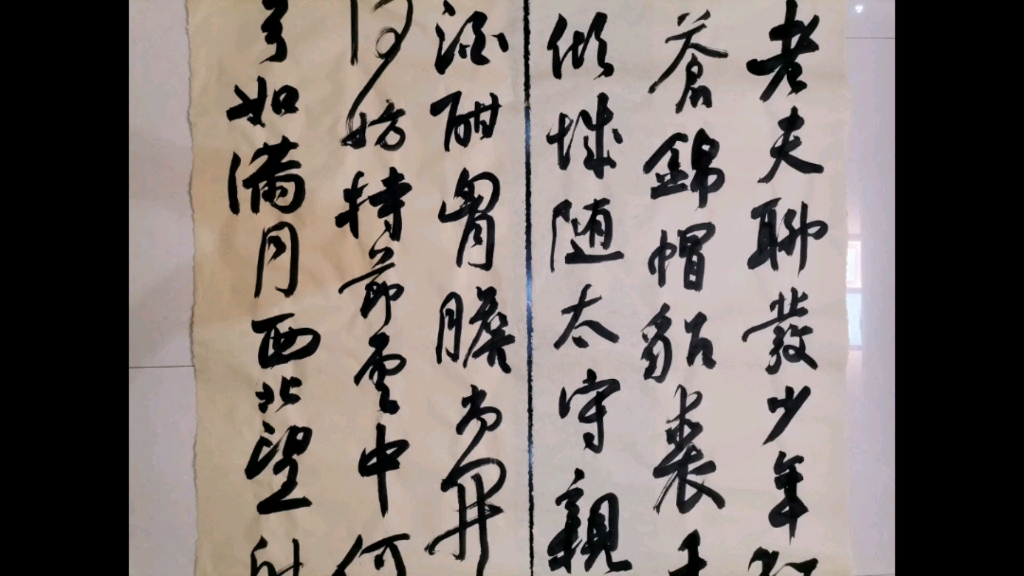 老夫聊發少年狂
蒼錦帽貂裘千
傾城随太守親
酒酣胷膽尚開
何妨持節雲中何
弓如满月西北望射